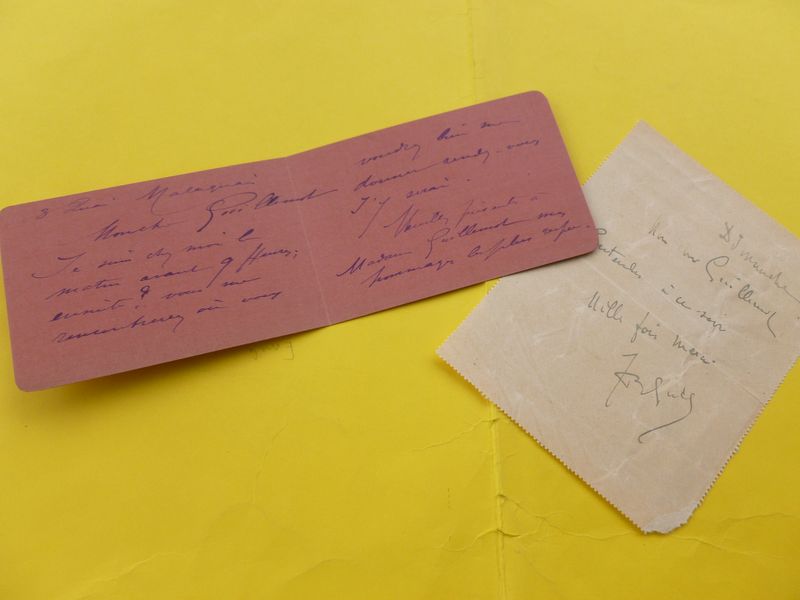 3 Quai Malaquai
Mon cher Guillemot
Je suis chez moi le
matin avant 9 heures;
ensuite, vous me
rencontrerez où vous
voudrez bien me
donner rendez-vous
J'y serai.
Veuillez présenter à
Madame Guillemot mes
hommages le plus
Dimanche
Mon cher Guillemot
Entendu à ce soir
Mille fois merci